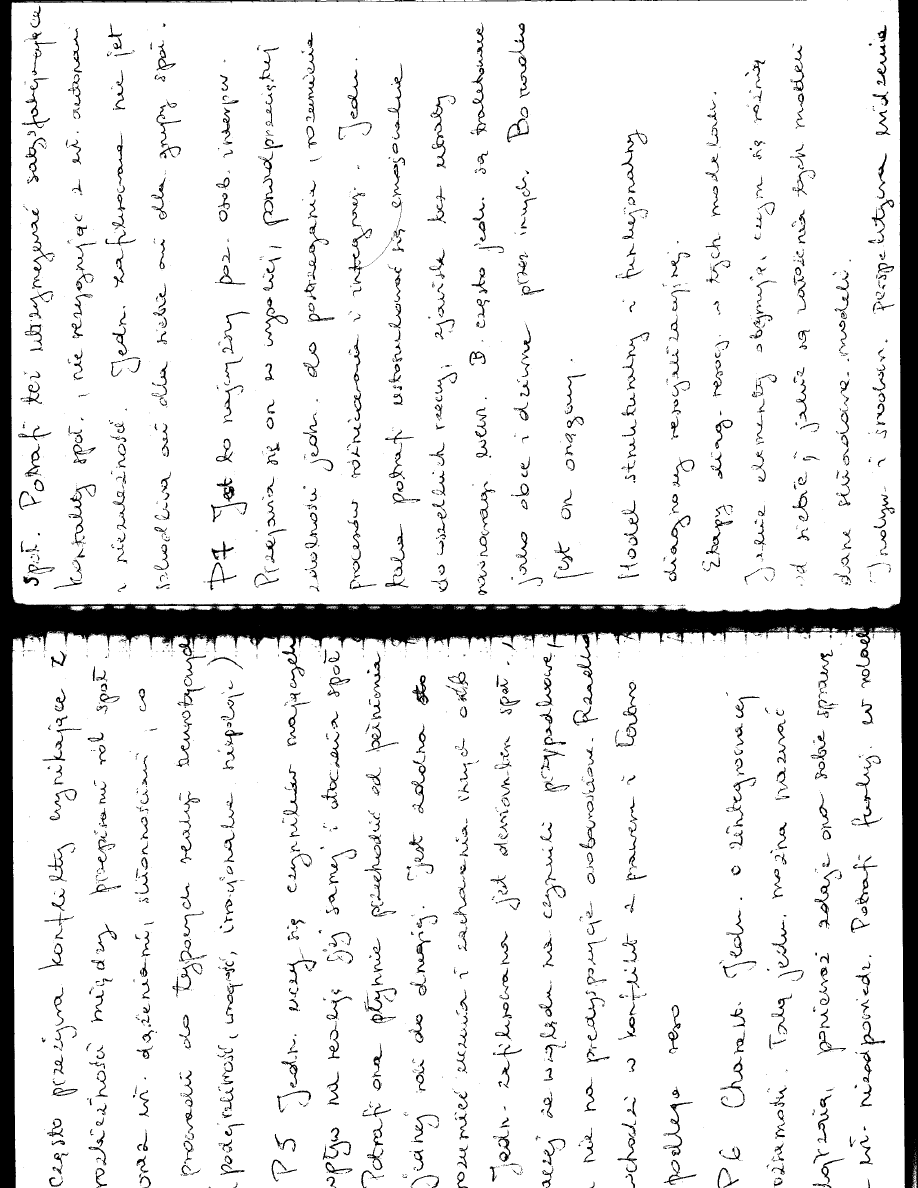 często przeżywa konflikty wynikające z
rozbieżności między przepisami ról społ.
oraz wł. dążeniami, skłonnościami, co
prowadzi do typowych reakcji neurotycznych
(podejrzliwość, wrogość, irracjonalne niepokoje)
P5 Jedn. uczy się czynników mających
wpływ na reakcje jej samej i otoczenia społ
Potrafi ona płynnie przechodzić od pełnienia
jednej roli do drugiej. Jest zdolna
rozumieć uczucia i zachowania innych osób.
Jedn. zafiksowana jest dewiantem społ.,
ze względu na czynniki przypadkowe,
nie na predyspozycje osobnicze. Rzadko
wchodzi w konflikt z prawem i łatwo
podlega reso
P6 Charakt. Jedn. o zintegrowanej
tożsamości. Taką jedn. można nazwać
dojrzałą, ponieważ zdaje ona sobie sprawę
z wł. nieodpowiedz. Potrafi funkcj. w rolach
społ. Potrafi też utrzymywać satysfakcjonujące
kontakty społ., nie rezygnując z wł. autonomii
i niezależności. Jedn. zafiksowana nie jest
szkodliwa ani dla siebie ani dla grupy społ.
P7 Jest to najwyższy poz. osob. interper.
Przejawia się on w wyższej, ponadprzeciętnej
zdolności jedn. do postrzegania, rozumienia
procesów różnicowania i integracji. Jedn.
taka potrafi ustosunkować się emocjonalnie
do wszelkich rzeczy, zjawisk bez utraty
równowagi wewn. B. często jedn. są traktowane
jako obce i dziwne przez innych. B. rzadko
jest on osiągany.
Model strukturalny i funkcjonalny
diagnozy resocjalizacyjnej.
Etapy diag. resocj. w tych modelach.
Jakie elementy obejmuje, czym się różnią
od siebie, jakie są założenia tych modeli
dane skłonowane modeli.
Indyw. i środow. perspektywa widzenia